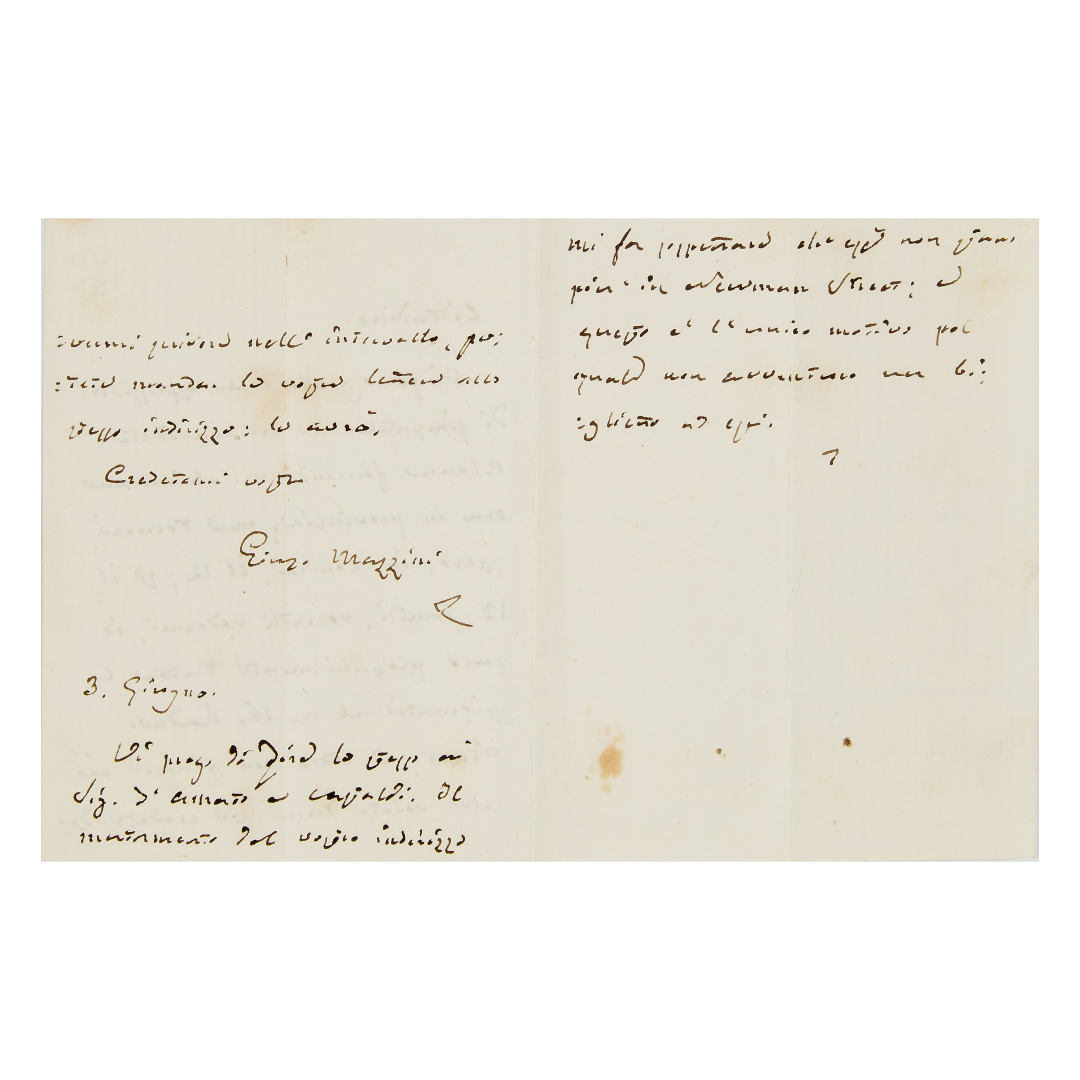 :vermi scrivere nell' intervallo, po:
:tete mandar la vostra lettera allo
stesso indirizzo: la avrò.
Credetemi vostro
Gius. Mazzini
3. Giugno.
Vi prego di dire lo stesso ai
Sig. d'Amato e Capaldi. Il
mutamento del vostro indirizzo
mi fa sospettare che essi non stiano
più in Newman Street; e
questo è l'unico motivo pel
quale non avventuro un bi:
:glietto ad essi.